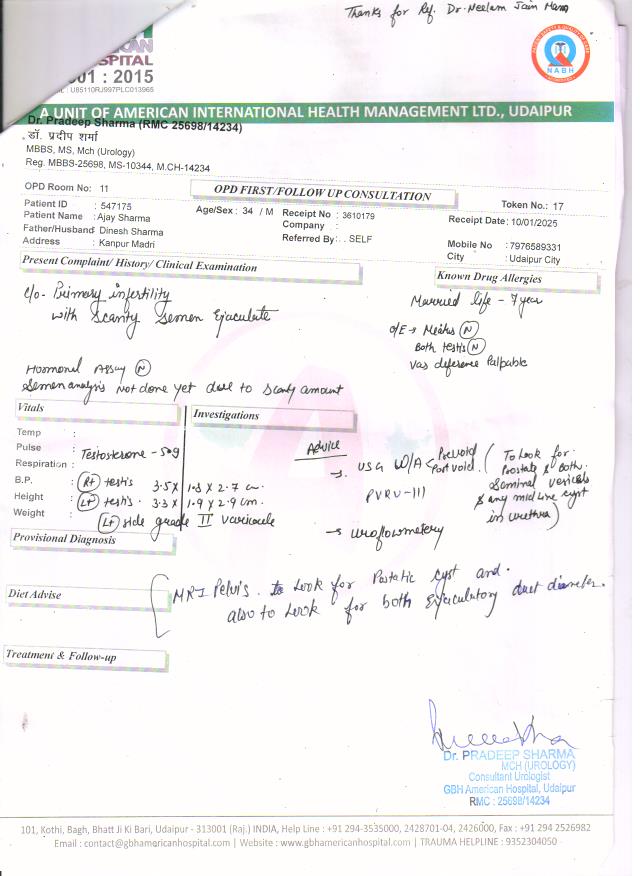 Thanks for Ref. Dr. Neelam Jain Mam
AMERICAN
HOSPITAL
9001 : 2015
: U85110RJ997PLC013965
NABH
A UNIT OF AMERICAN INTERNATIONAL HEALTH MANAGEMENT LTD., UDAIPUR
Dr. Pradeep Sharma (RMC 25698/14234)
डॉ. प्रदीप शर्मा
MBBS, MS, Mch (Urology)
Reg. MBBS-25698, MS-10344, M.CH-14234
OPD Room No: 11
OPD FIRST/FOLLOW UP CONSULTATION
Token No.: 17
Patient ID : 547175
Age/Sex : 34 / M
Receipt No : 3610179
Receipt Date: 10/01/2025
Patient Name : Ajay Sharma
Company :
Father/Husband Dinesh Sharma
Referred By: . SELF
Mobile No : 7976589331
Address : Kanpur Madri
City : Udaipur City
Present Complaint/ History/ Clinical Examination
Known Drug Allergies
c/o- Primary infertility
with scanty Semen Ejaculate
Married life - 7 year
O/E → Meatus (N)
Both testis (N)
Vas deference Palpable
Hormonal Assay (N)
Semen analysis Not done yet due to scanty amount
Vitals
Investigations
Temp :
Pulse :
Testosterone - 509
Respiration :
B.P. :
(Rt) testis 3.5 x 1.8 x 2.7 cm.
Height :
(Lt) testis. 3.3 x 1.9 x 2.9 cm.
Weight :
(Lt) side grade II varicocele
Advice
→ USG W/A < Prevoid
Postvoid. (To Look for.
Prostate & Both.
Seminal vesicals
& any mid line cyst
in urethra)
PVRU-III
→ Uroflowmetery
Provisional Diagnosis
Diet Advise
MRI Pelvis. to Look for Postatic cyst and.
also to Look for both Ejaculatory duct diameter.
Treatment & Follow-up
Dr. PRADEEP SHARMA
MCH (UROLOGY)
Consultant Urologist
GBH American Hospital, Udaipur
RMC : 25698/14234
101, Kothi, Bagh, Bhatt Ji Ki Bari, Udaipur - 313001 (Raj.) INDIA, Help Line : +91 294-3535000, 2428701-04, 2426000, Fax : +91 294 2526982
Email : contact@gbhamericanhospital.com | Website : www.gbhamericanhospital.com | TRAUMA HELPLINE : 9352304050